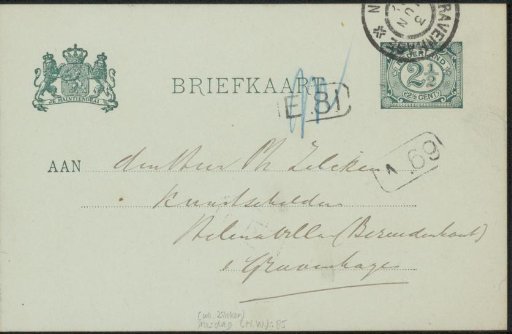 'S GRAVENHAGE
BRIEFKAART
2½
CENT
JE MAINTIENDRAI
E 81
AAN den Heer Ph Zilcken
1.69
Kunstschilder
Helenavilla (Bezuidenhout)
's Gravenhage